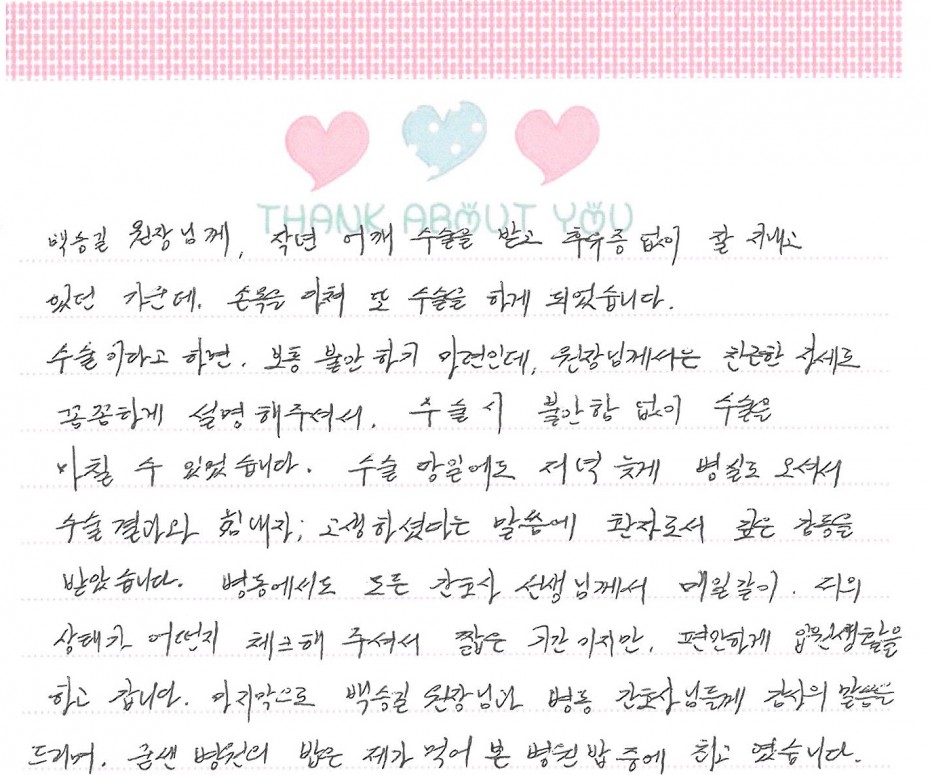 THANK ABOUT YOU
백승길 원장님께, 작년 어깨 수술을 받고 후유증 없이 잘 지내고
있던 가운데. 손목을 다쳐 또 수술을 하게 되었습니다.
수술이라고 하면. 보통 불안하기 마련인데, 원장님께서는 친근한 자세로
꼼꼼하게 설명해주셔서. 수술시 불안함 없이 수술을
마칠 수 있었습니다. 수술 당일에도 저녁 늦게 병실로 오셔서
수술결과와 힘내자, 고생하셨다는 말씀에 환자로서 깊은 감동을
받았습니다. 병동에서도 모든 간호사 선생님께서 매일같이. 저의
상태가 어떤지 체크해 주셔서 짧은 기간이지만, 편안하게 입원생활을
하고 갑니다. 마지막으로 백승길 원장님과 병동 간호사님들께 감사의 말씀을
드리며. 굳센병원의 밥은 제가 먹어 본 병원밥 중에 최고 였습니다.